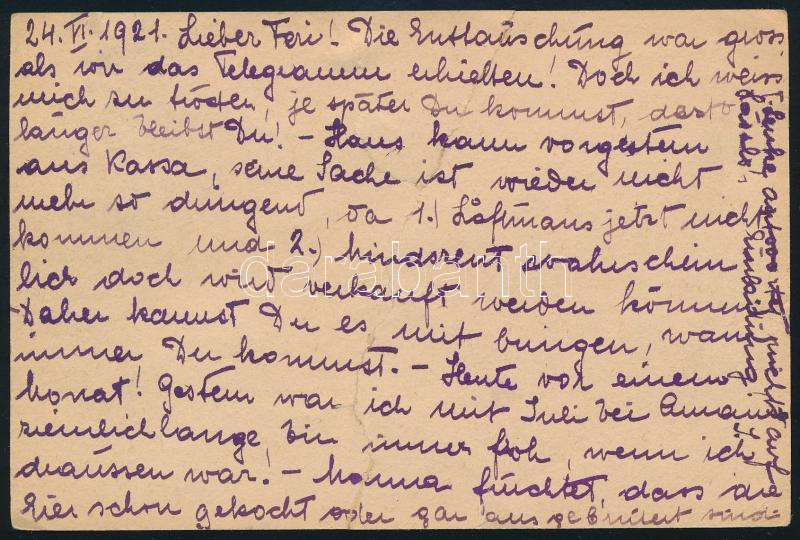 24. VI. 1921. Lieber Feri! Die Enttäuschung war gross,
als wir das Telegramm erhielten! Doch ich weiss
mich zu trösten, je später Du kommst, desto
länger bleibst Du! – Hans kam vorgestern
aus Kassa, seine Sache ist wieder nicht
mehr so dringend, da 1.) jetzt nicht
kommen und 2.) Mindszent wahrschein
lich doch wird verkauft werden können
Daher kannst Du es mit bringen, wann
immer Du kommst. – Heute vor einem
Monat! Gestern war ich mit Juli bei
ziemlich lange, bin immer froh, wenn ich
draussen war! – Mama fürchtet, dass die
Eier schon gekocht oder gar ausgebrütet sind.
nicht auf
Einbildung!
darabanth